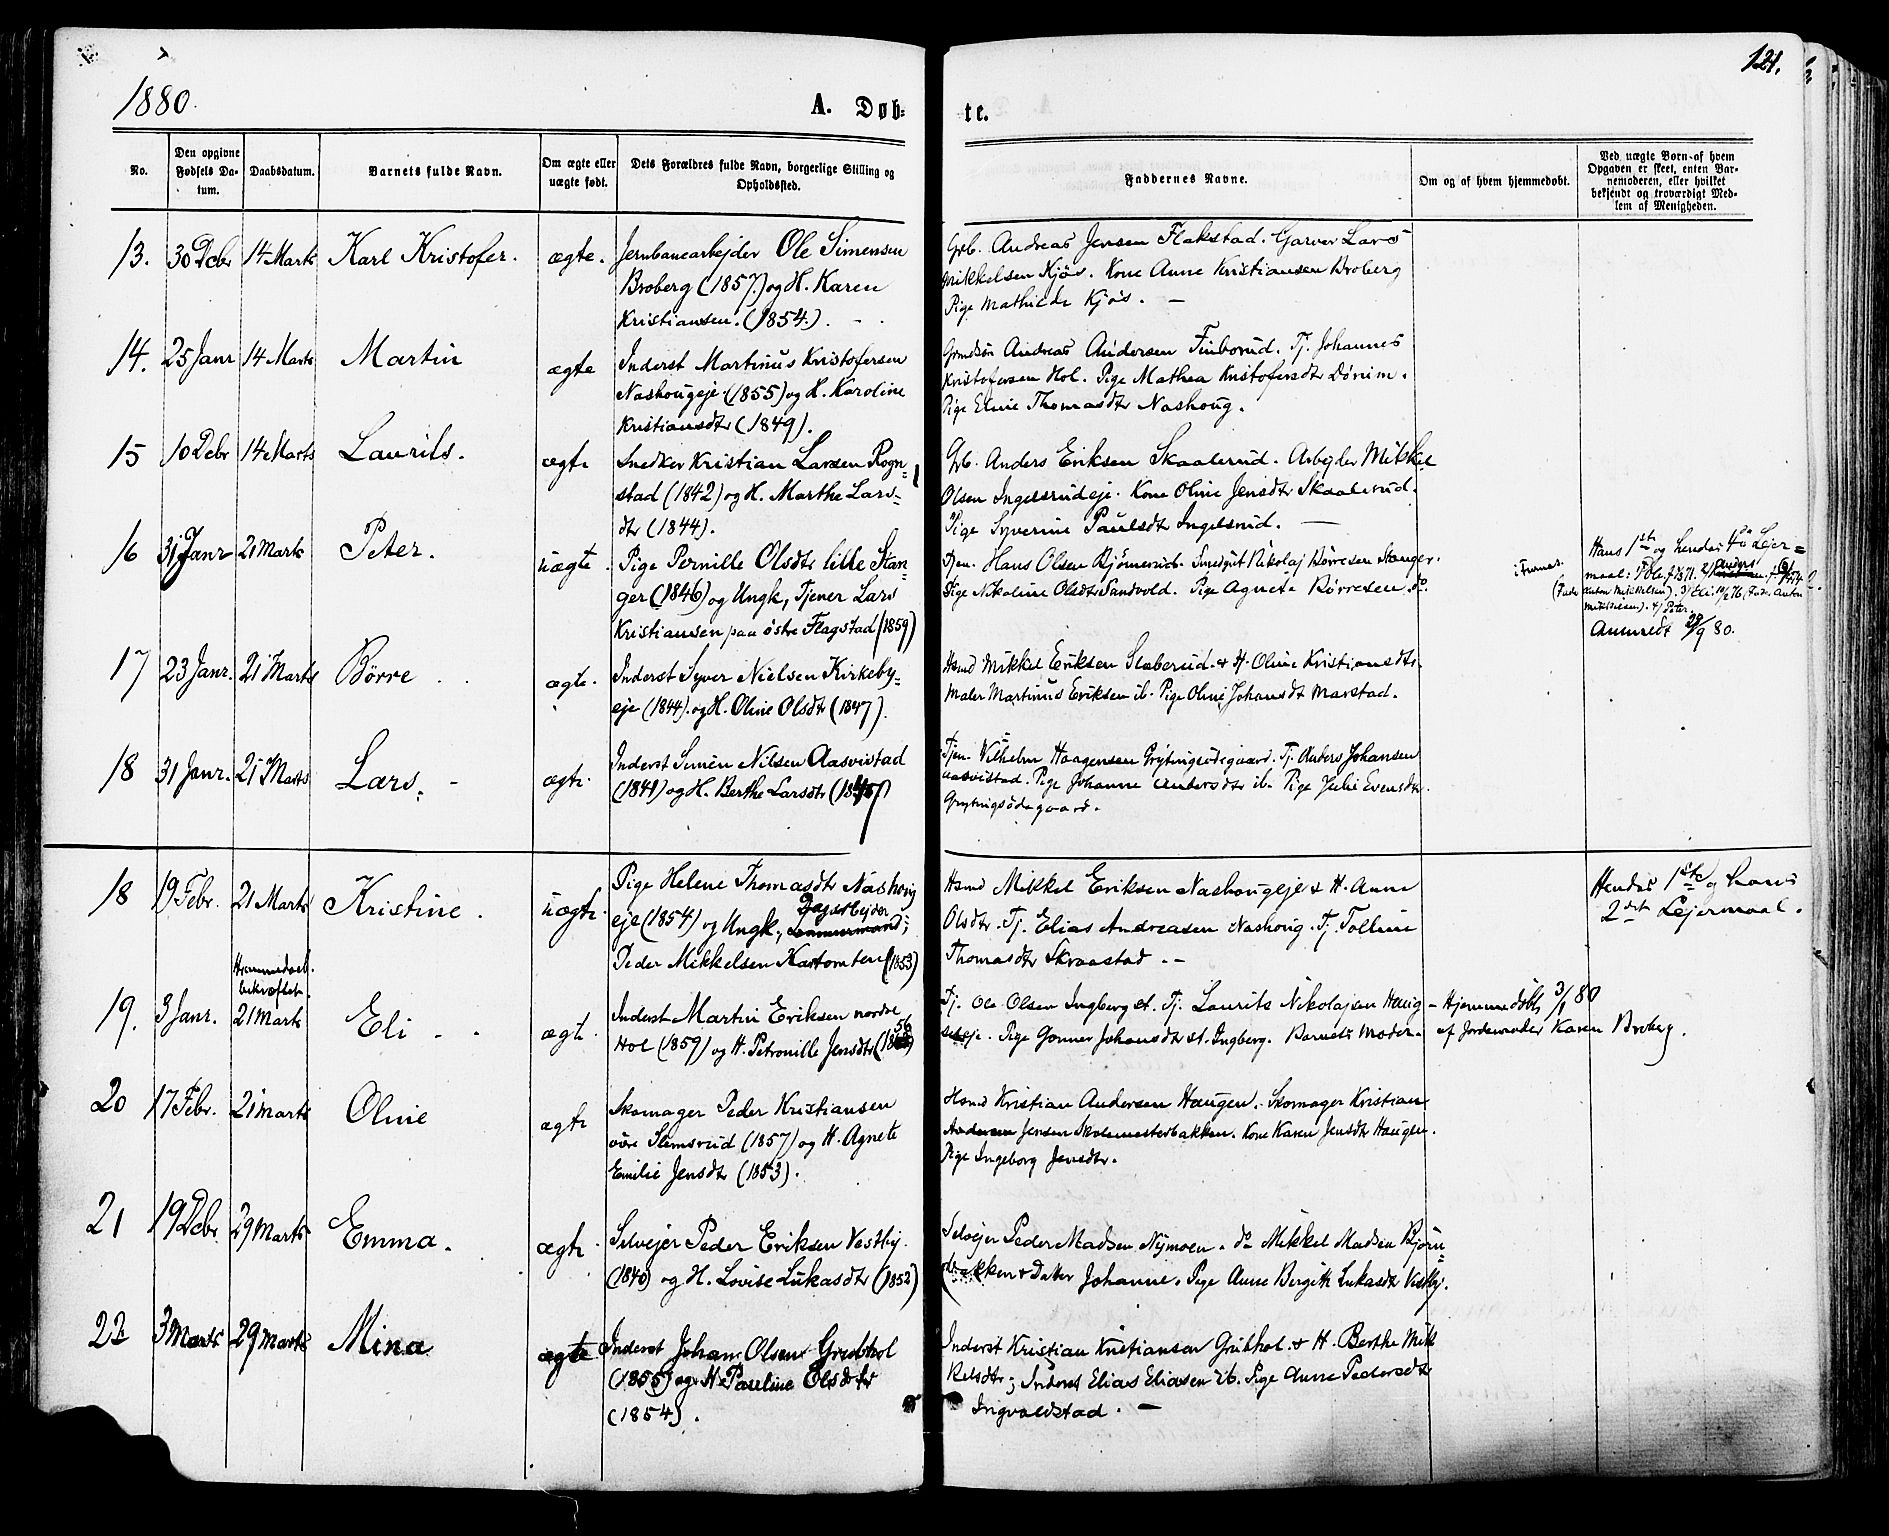 1880.
A. Døb-
te.
121.
No.
Den opgivne Fødsels Da-tum.
Daabsdatum.
Barnets fulde Navn.
Om ægte eller uægte født.
Dets Forældres fulde Navn, borgerlige Stilling og Opholdssted.
Faddernes Navne.
Om og af hvem hjemmedøbt.
Ved uægte Børn af hvem Opgaven er skeet, enten Bar-nemoderen, eller hvilket bekjendt og troværdigt Med-lem af Menigheden.
13. 30 Dcbr 14 Marts Karl Kristofer. ægte. Jernbanearbejder Ole Simensen
Broberg (1857.) og H. Karen
Kristiansen. (1854.).
Grb. Andreas Jensen Flakstad. Garver Lars
Mikkelsen Kjøs. Kone Anne Kristiansen Broberg
Pige Mathilde Kjøs. —
14. 25 Janr 14 Marts Martin ægte Inderst Martinus Kristofersen
Nashougeje (1855) og H. Karoline
Kristiansdtr (1849).
Grmdsøn Andreas Andersen Finborud. Tj. Johannes
Kristofersen Hol. Pige Mathea Kristofersdtr Dørum.
Pige Eline Thomasdtr Nashoug.
15 10 Dcbr 14 Marts Laurits. ægte Snedker Kristian Larsen Rogn-
stad (1842) og H. Marthe Lars-
dtr (1844).
Grb. Anders Eriksen Skaalerud. Arbejder Mikkel
Olsen Ingelsrudeje. Kone Oline Jensdtr Skaalerud.
Pige Syverine Paulsdtr Ingelsrud. —
16 31 Janr 21 Marts Peter. uægte. Pige Pernille Olsdtr lille Stan-
ger (1846) og Ungk, Tjener Lars
Kristiansen paa østre Flagstad (1859)
Tjen. Hans Olsen Bjørnerud. Smedgut Nikolaj Børresen Stanger.
Pige Nikoline Olsdtr Sandvold. Pige Agnete Børresen do.
i Furnæs.
Hans 1ste og hendes 4de Lejer=
maal: 1) Ole f. 1871. 2) Anders
Anton Mikkelsen). 3) Eli
Mikkelsen). 4) Peter.
Anmeldt 29/9 80.
17 23 Janr. 21 Marts Børre ægte. Inderst Syver Nielsen Kirkeby-
eje (1844). og H. Oline Olsdtr (1847).
Hsmd Mikkel Eriksen Slaberud & H. Oline Kristiansdtr.
Maler Martinus Eriksen ib. Pige Oline Johansdt Marstad.
18 31 Janr. 21 Marts Lars. ægte. Inderst Simen Nilsen Aasvistad
(1841) og H. Berthe Larsdtr
Tjen. Vilhelm Haagensen Grytingsødegaard. Tj. Anders Johansen
Aasvistad. Pige Johanne Andersdtr ib. Pige Julie Evensdtr.
Grytingsødegaard.
18 19 Febr. 21 Marts Kristine. uægte. Pige Helene Thomasdtr Nashoug
eje (1854) og Ungk, Dagarbejder
Peder Mikkelsen Kastomten (1853)
Hsmd Mikkel Eriksen Nashougeje & H. Anne
Olsdtr. Tj. Elias Andreasen Nashoug. Tj. Folline
Thomasdtr Skraastad. —
Hendes 1ste og hans
2det Lejermaal.
Hjemmedaab.
bekræftet.
19. 3 Janr. 21 Marts Eli ægte. Inderst Martin Eriksen nordre
Hol (1859) og H. Petronille Jensdtr
Tj. Ole Olsen Ingberg st. Tj. Laurits Nikolajsen Haug
Pige Gonner Johansdtr st. Ingberg. Barnets Moder.
Hjemmedøbt 3/1 80
af Jordemoder Karen Broberg.
20 17 Febr. 21 Marts Oline ægte Skomager Peder Kristiansen
øvre Slemsrud (1857) og H. Agnete
Emilie Jensdtr (1853).
Hsmd Kristian Andersen Haugen. Skomager Kristian
Andersen Jensen Skolemesterbakken. Kone Karen Jensdtr Haugen.
Pige Ingeborg Jensdtr.
21 19 Dcbr. 29 Marts Emma. ægte. Selvejer Peder Eriksen Vestby.
(1840) og H. Lovise Lukasdtr (1852)
Selvejer Peder Madsen Nymoen. do Mikkel Madsen Bjørn-
bakken & Datter Johanne. Pige Anne Bergith Lukasdtr Vestby.
22 3 Marts 29 Marts Mina ægte Inderst Johan Olsen Grubhol
(1855) og H. Pauline Olsdtr
(1854).
Inderst Kristian Kristiansen Grubhol. & H. Berthe Mik
kelsdtr; Inderst Elias Eliasen ib. Pige Anne Pedersdtr
Ingvaldstad. —